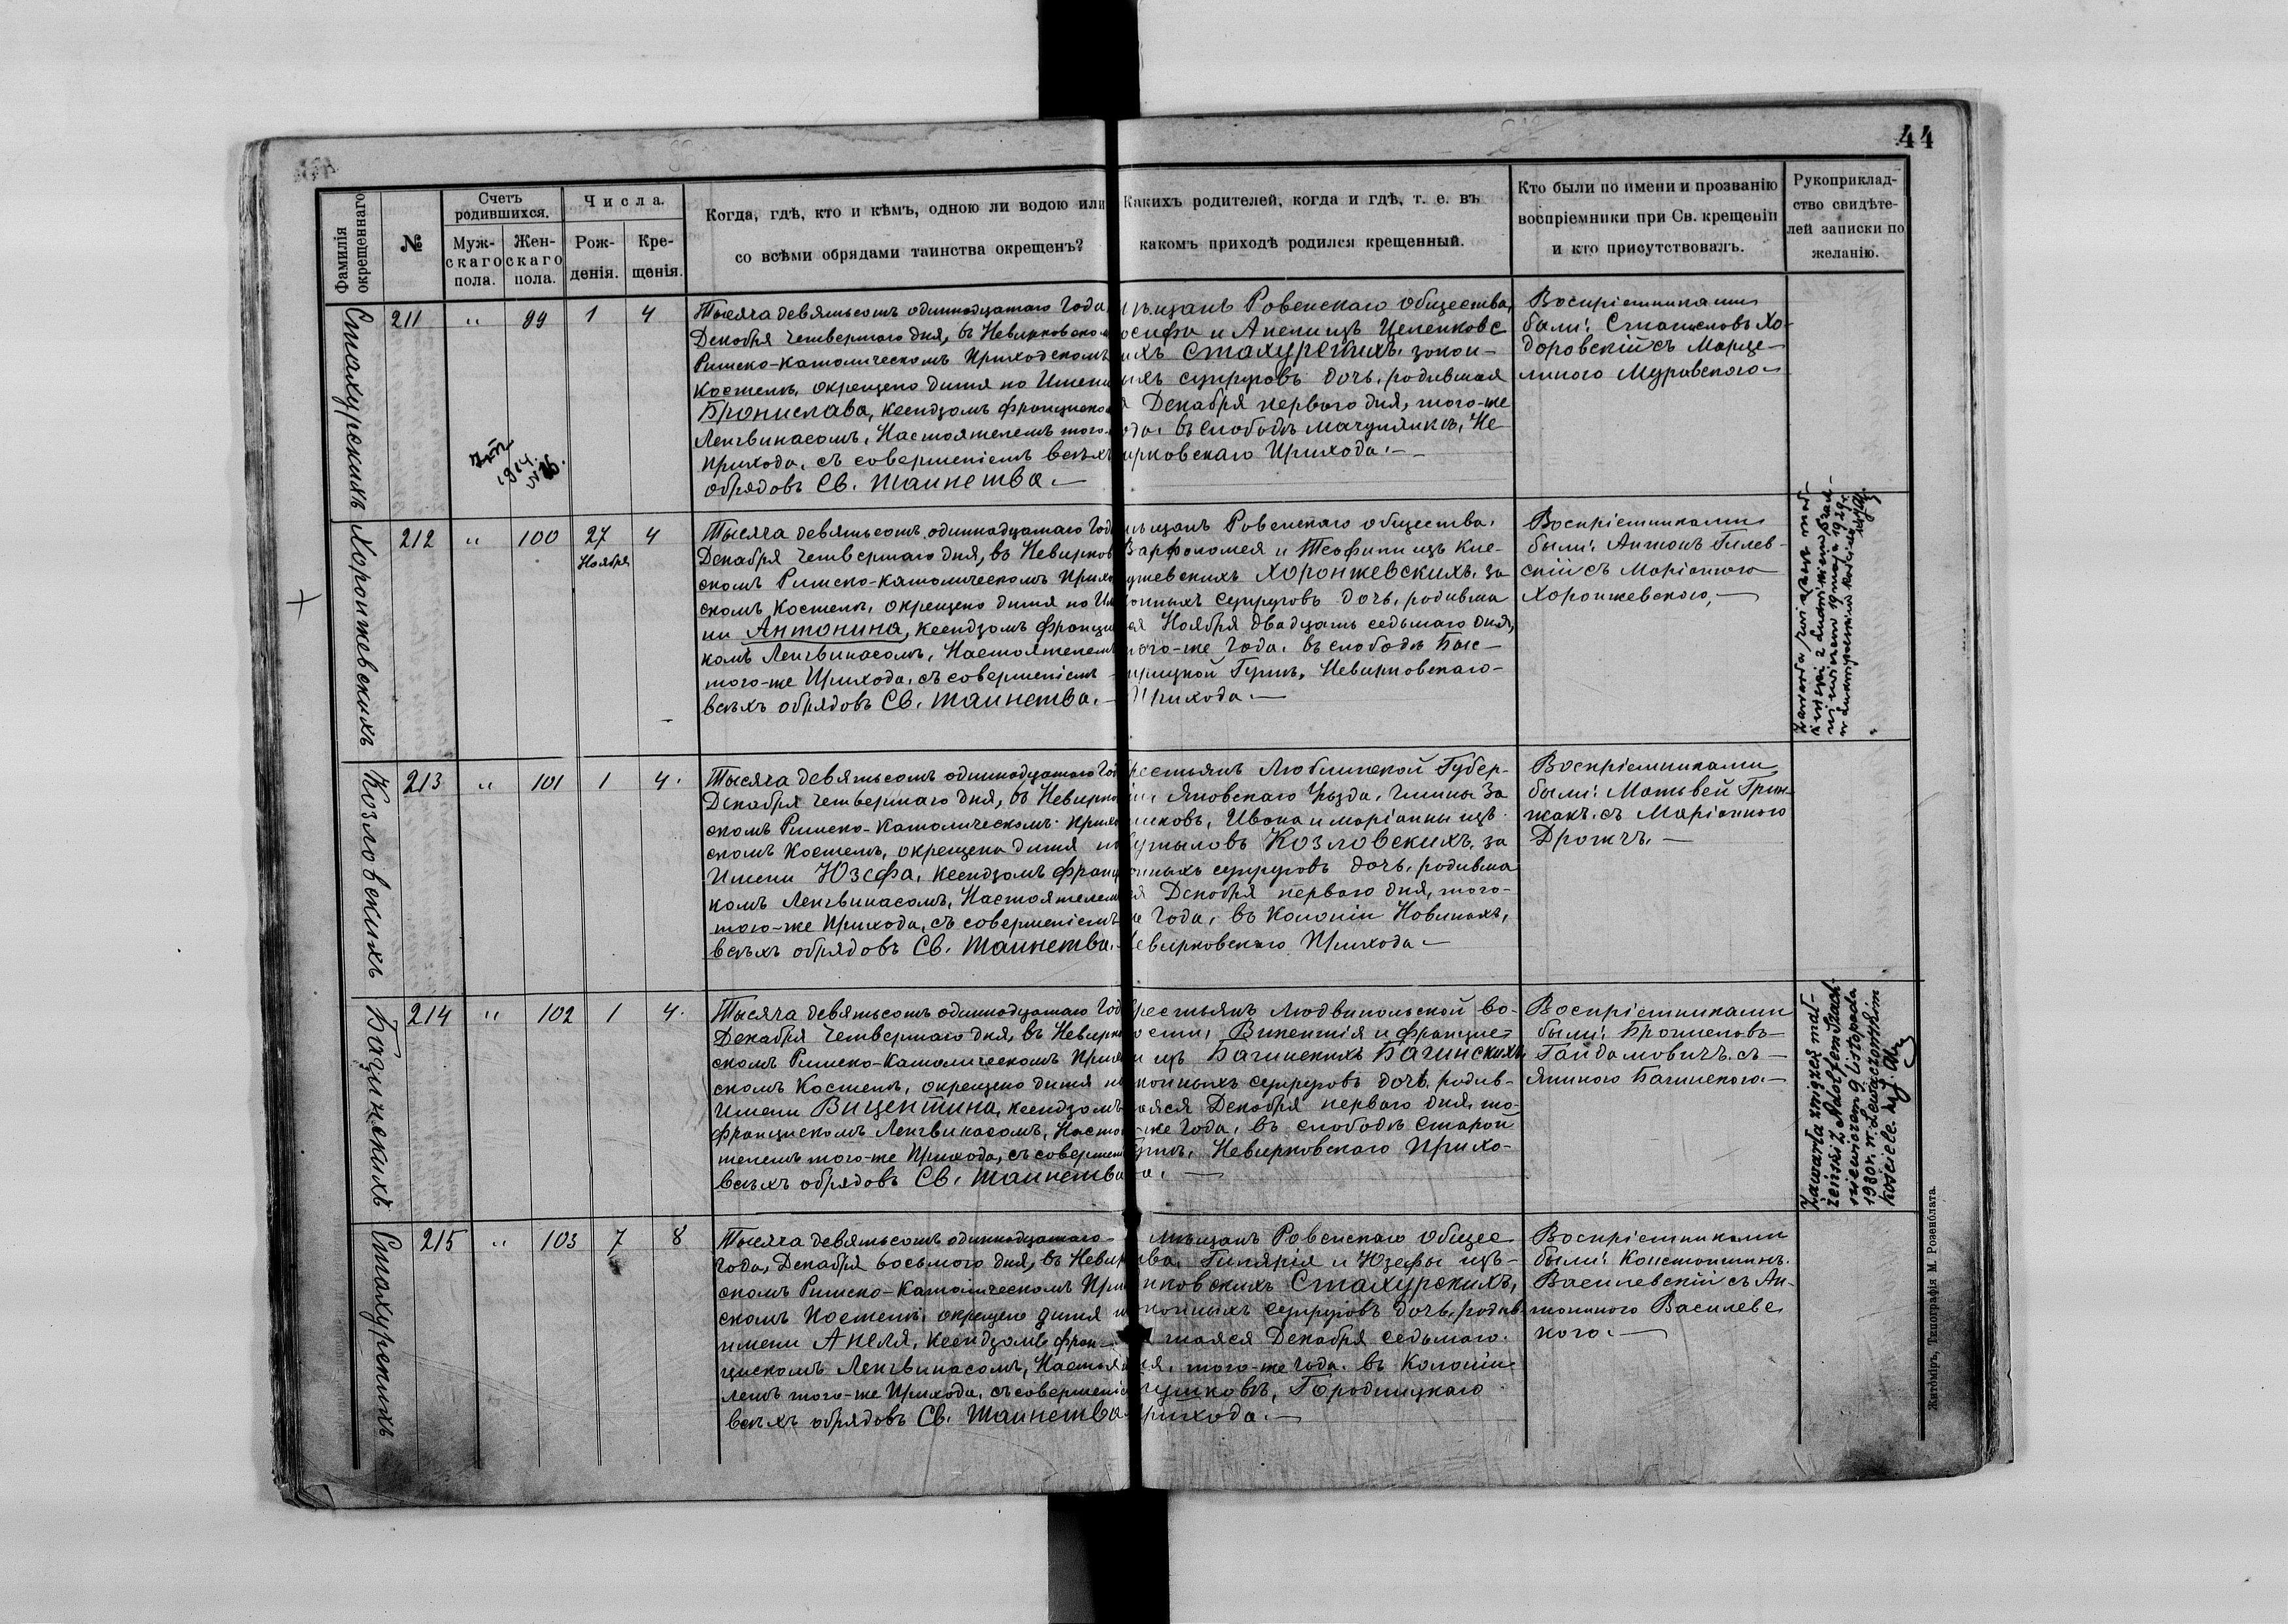 44
Фамилія окрещеннаго
№
Счетъ родившихся.
Муж-скаго пола.
Жен-скаго пола.
Числа.
Рож-денія.
Кре-щенія.
Когда, гдѣ, кто и кѣмъ, одною ли водою или
со всѣми обрядами таинства окрещенъ?
Какихъ родителей, когда и гдѣ, т. е. въ
какомъ приходѣ родился крещенный.
Кто были по имени и прозванію
воспріемники при Св. крещеніи
и кто присутствовалъ.
Рукоприклад-
ство свидѣте-
лей записки по
желанію.
Стахурскихъ
211 " 99 1 4
Тысяча девятьсотъ одиннадцатаго Года,
Декабря четвертаго дня, въ Невирковском
Римско-Католическомъ Приходскомъ
Костелѣ, окрещено дитя по Имени
Бронислава, Ксендзомъ Франциско
Ленгвинасомъ, Настоятелемъ того
Прихода, съ совершеніемъ всѣхъ
обрядовъ Св. Таинства.—
1914.
щанъ Ровенскаго общества,
осифа и Анели изъ Целенковс
ихъ Стахурскихъ, закон-
ихъ супруговъ дочь, родившая
Декабря перваго дня, того-же
ода, въ слободѣ Мачулянкѣ, Не
ирковскаго Прихода.—
Воспріемниками
были: Станиславъ Хо-
доровскій съ Марце-
линою Муравскою
Хоронжевскихъ
212 " 100 27 Ноября 4
Тысяча девятьсотъ одиннадцатаго Год
Декабря четвертаго дня, въ Невирков
скомъ Римско-Католическомъ Прихо
скомъ Костелѣ, окрещено дитя по Им
ни Антонина, Ксендзомъ Франци
комъ Ленгвинасомъ, Настоятелем
того-же Прихода, съ совершеніемъ
всѣхъ обрядовъ Св. Таинства.—
ѣщанъ Ровенскаго общества,
Варфоломея и Теофили изъ Кие-
ушевскихъ Хоронжевскихъ, за
онныхъ супруговъ дочь, родивша
ая Ноября двадцать седьмаго дня,
того-же Года, въ слободѣ Быс-
трицкой Гутѣ, Невирковскаго
Прихода.—
Воспріемниками
были: Антонъ Гилев-
скій съ Маріанною
Хоронжевскою,—
Козловскихъ
213 " 101 1 4.
Тысяча девятьсотъ одиннадцатаго Год
Декабря четвертаго дня, въ Невирко
скомъ Римско-Католическомъ Прихо
скомъ Костелѣ, окрещено дитя по
Имени Юзефа, Ксендзомъ Франц
комъ Ленгвинасомъ, Настоятелем
того-же Прихода, съ совершеніемъ
всѣхъ обрядовъ Св. Таинства.
рестьянъ Люблинской Губер-
іи, Яновскаго Уѣзда, Гмины За
Ивана и Маріанны изъ
Козловскихъ, за
онныхъ супруговъ дочь, родивша
я Декабря перваго дня, того-
е Года, въ Колоніи Новинахъ,
евирковскаго Прихода.—
Воспріемниками
были: Матвей Грин
жакъ съ Маріанною
Дротчъ.—
Багинскихъ
214 " 102 1 4.
Тысяча девятьсотъ одиннадцатаго Год
Декабря четвертаго дня, въ Невирко
скомъ Римско-Католическомъ Прихо
скомъ Костелѣ, окрещено дитя по
Имени Вицентина, Ксендзомъ
Францискомъ Ленгвинасомъ, Насто
телемъ того-же Прихода, съ совершен
всѣхъ обрядовъ Св. Таинства
рестьянъ Людвипольской во-
ости, Викентія и Францис-
и изъ Багинскихъ Багинскихъ
конныхъ супруговъ дочь, родив-
аяся Декабря перваго дня, то-
-же Года, въ слободѣ Старой
Гутѣ, Невирковскаго Прихо-
а.—
Воспріемниками
были: Брониславъ
Гайдамовичъ съ
Яниною Багинскою.—
Zawarła związek mał-
żeński z Adolfem Stach
9 listopada
1930 r. w Lewaczowskim
kościele.
Стахурскихъ
215 " 103 7 8
Тысяча девятьсотъ одиннадцатаго
Года, Декабря восьмого дня, въ Невир
скомъ Римско-Католическомъ При
скомъ Костелѣ, окрещено дитя п
имени Анеля, Ксендзомъ Фран-
цискомъ Ленгвинасомъ, Настоя
лемъ того-же Прихода, съ совершеніе
всѣхъ обрядовъ Св. Таинства
мѣщанъ Ровенскаго общес
тва, Гилярія и Юзефы изъ
нковскихъ Стахурскихъ,
конныхъ супруговъ дочь, родив-
шаяся Декабря седьмаго
ня, того-же года, въ Колоніи
Городницкаго
Прихода.—
Воспріемниками
были: Константинъ
Василевскій съ Ан-
тониною Василевс
кою.—
Житоміръ, Типографія М. Розенблата.